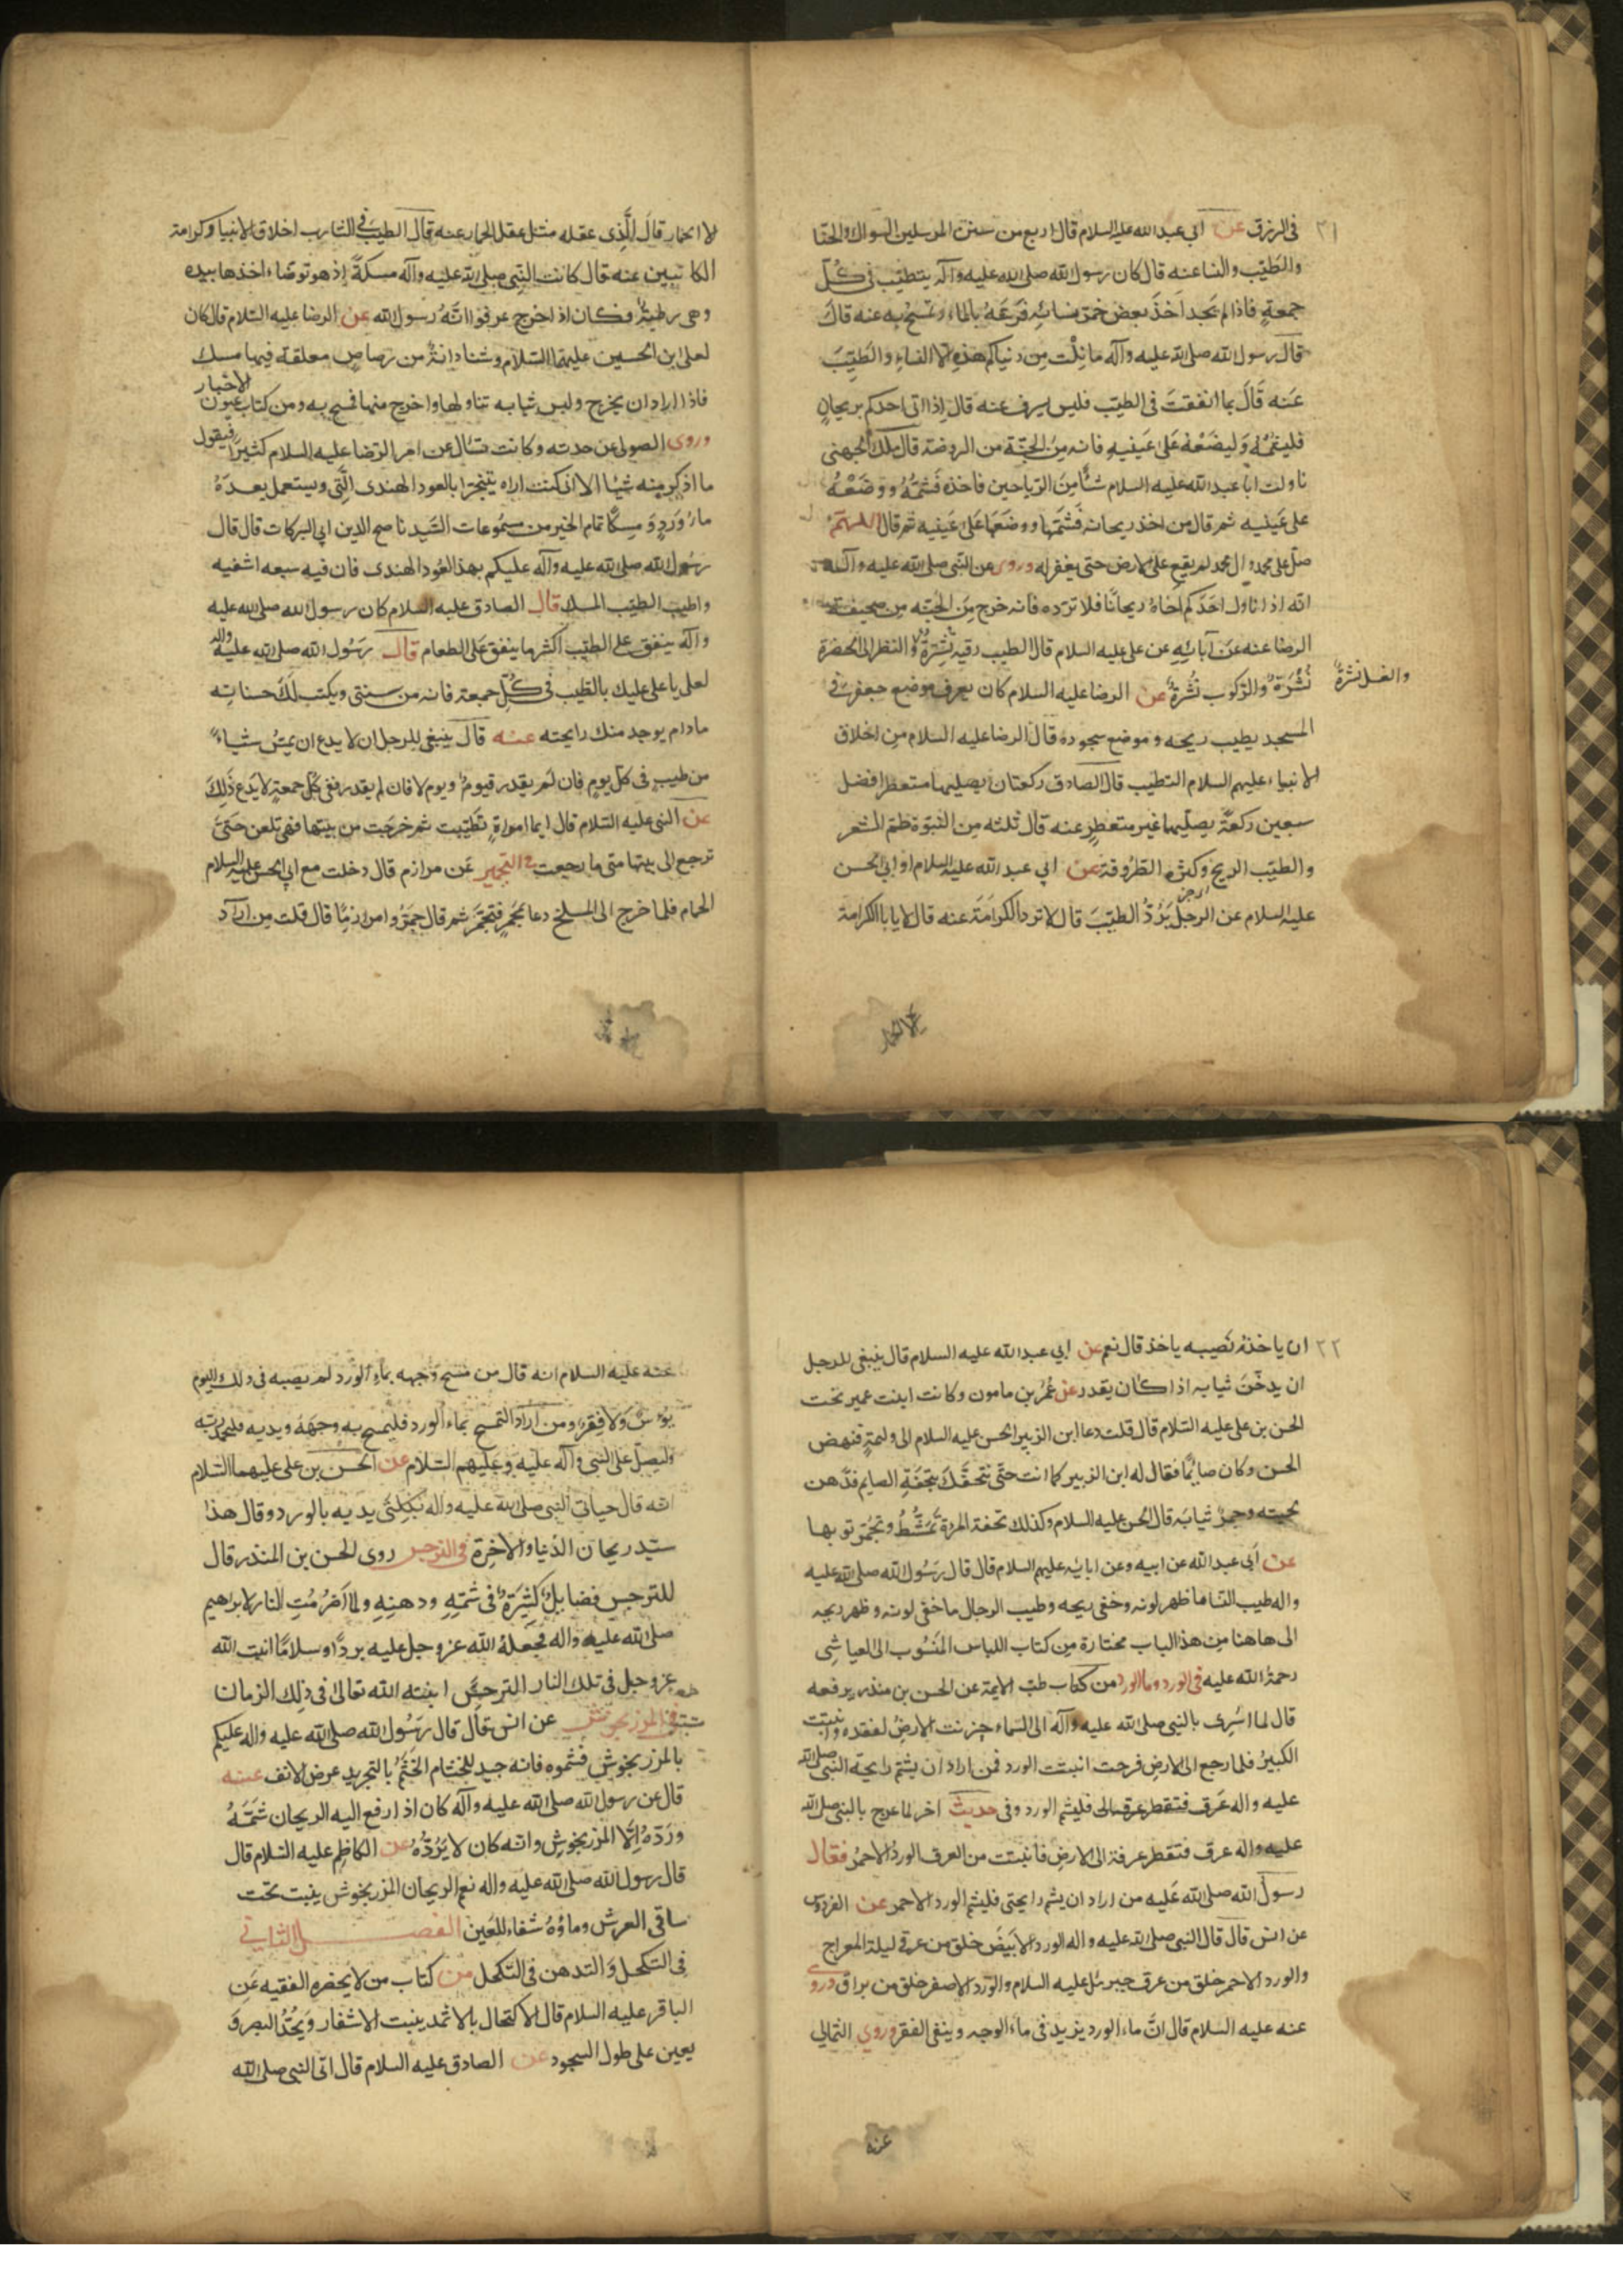 ٢١
في الرزق عن ابي عبد الله عليه السلام قال اربع من سنن المرسلين السواك والحنا
والطيب والنسا عنه قال كان رسول الله صلى الله عليه وآله يتطيب في كل
جمعةٍ فاذا لم يجد اخذَ بعض خمر نسائهِ فرَشّهُ بالماء ومسّح به عنه قالَ
قال رسول الله صلى الله عليه وآله ما نِلْت مِن دنياكم هذهِ الا النساءِ والطيبَ
عَنه قَالَ ما انفقتَ في الطيب فليس بسرف عنه قال اِذا اتى احدكم بريحانٍ
فليشمّهُ وَليضَعْهُ عَلى عَينيهِ فانه مِن الجنّة من الروضة قال ملك الجهنى
ناولت ابا عبد الله عليه السلام شئًا مِن الرّياحين فاخذهُ فَشَمّهُ ووَضَعْهُ
على عَينيه ثم قال من اخذ ريحانه فَشَمّها ووضَعَها عَلى عَينيه ثم قال اللهم
صل على محمد وال محمد لم يقع على الارض حتى يغفر له وروى عن النبى صلى الله عليه وآله
انّه اذا ناول احَدَكم اخاهُ ريحانًا فلا تردّه فانه خرج مِن الجنّه مِن صحيفة
الرضا عنه عَن آبائِهِ عن على عليه السلام قال الطيب رقيه نُشرَةٌ والنظر الى الخضرة
نُشْرَةٌ والركوب نُشرةٌ عن الرضا عليه السلام كان يعرف موضع جعفر في
والغسل نشرةٌ
المسجد بطيب ريحه وموضع سجوده قال الرضا عليه السلام مِن اخلاق
الانبياء عليهم السلام التطيب قال الصادق ركعتان يصليهما متعطر افضل
سبعين ركعةً يصلّيها غير متعطرٍ عنه قال ثلثه من النبوة طم الشعر
والطيب الريح وكثرة الطرُوقة عن ابي عبد الله عليه السلام او ابي الحسن
عليه السلام عن الرجل يَرُدّ الطيّبَ قال لا ترد الكرامَة عنه قال لا يابا الكرامة
الا الحمار
لا الحمار قالَ الّذِى عقله مثل عقل الحمار عنه قال الطيب في الشارب اخلاق الانبيا وكرامة
الكاتبين عنه قال كانت للنبى صلى الله عليه وآله مسكةً اِذ هو توضاء اخذها بيده
وهى رطبةٌ فكان اذ اخرج عرفوا انّه رسول الله عن الرضا عليه السلام قال كان
لعلى ابن الحسين عليهما السلام وشنادانةٌ من رصاصٍ معلقة فيها مسك
فاذا اراد ان يخرج ولبس ثيابه تناولها واخرج منها فمسح به ومن كتاب عيون الاخبار
وروى الصولى عن جدته وكانت تسأل عن امر الرضا عليه السلام كثيرًا فيقول
ما اذكر مِنه شيئا الا انى كنت اراه يتبخر بالعود الهندى الّتى ويستعمل بعدَهُ
مارُ وَردٍ وَ مِسكًا تمام الخبر من مسمُوعات السّيد ناصح الدين ابي البركات قال قال
رسُول الله صلى الله عليه وآله عليكم بهذا العُود الهندى فان فيه سبعه اشفيه
واطيب الطيب المسك قال الصادق عليه السلام كان رسول الله صلى الله عليه
وآله ينفق على الطيب اكثر ما ينفق على الطعام قال رسُول الله صلى الله عليه وآله
لعلى يا على عليك بالطيب فى كُلّ جمعة فانه من سنتى ويكتب لَكَ حسناته
مادام يوجد منك رايحته عنه قالَ ينبغى للرجل ان لا يدع ان يمسّ شياءً
من طيبٍ فى كل يومٍ فاِن لم يقدر فيومٌ ويوم لا فان لم يقدر ففى كل جمعةٍ لا يَدع ذَلِكَ
عن النبى عليه السّلام قال ايما امراةٍ تطيّبت ثم خرجَت من بيتها فهى تلعن حَتىَ
ترجع الى بيتها متى ما رجعت في التجمير عَن مرازم قال دخلت مع ابى الحسن عليه السلام
الحمام فلما خرج الى المسلخ دعا بمجمرٍ فتجمّر ثم قال جمرُوا مرازمًا قال قلت مِن ارادَ
٢٢
ان ياخذهُ نصيبه ياخذ قال نعم عن ابي عبد الله عليه السلام قال ينبغى للرجل
ان يدخّنَ ثيابه اذا كان يقدر عن عُمَرُ بنِ مامون وكانت ابنت عمير تحت
الحسن بن على عليه السّلام قال قلت دعا ابن الزبير الحسن عليه السلام الى وليمةٍ فنهض
الحسن وكان صائِمًا فقال له ابن الزبير كما انت حتّى نتحفَكَ بتحفَةِ الصايم فدّهن
لحيته وجمرّ ثيابَه قال الحسن عليه السلام وكذلك تحفة المرةِ تَمَشّطُ وتجُمّر توبها
عن اَبى عبد الله عن ابيه وعن ابائه عليهم السلام قال قال رَسُول الله صلى الله عليه
واله طيب النسا ما ظهر لونه وخفى ريحه وطيب الرجال ما خفى لونه وظهر ريحه
الى هاهنا مِن هذا الباب مختارة مِن كتاب اللباس المنسُوب الى العياشِى
رحمةُ الله عليه فى الورد وما الورد من كتاب طبّ الايمة عن الحسن بن منذر يرفعه
قال لما اسُرِى بالنبى صلى الله عليه وآله الى السّماءِ حزنت الارضُ لفقده وانبتت
الكبيرُ فلما رجع الى الارضِ فرحت انبتت الورد فمن اراد ان يشتم رايحة النبى صلى الله
عليه واله عَرق فتقطر عرقه الى فليشم الورد وفى حديث آخر لما عرج بالنبى صلى الله
عليه واله عرق فتقطر عرقة الى الارضِ فانبتت من العرق الوردُ الاحمرُ فقال
رسول الله صلى الله عَليه من اراد ان يشم رايحتى فليشم الورد الاحمر عن الفردوس
عن انس قال قال النبى صلى الله عليه واله الورد الابيَضُ خلق من عرقى ليلة المعراج
والورد الاحمر خلق من عرق جبرئيل عليه السلام والورد الاصفر خلق من براق وروى
عنه عليه السلام قال انّ ماء الورد يزيد فى ماءِ الوجه وينفى الفقر وروى الثمالي
عنه
عنه عليه السلام انه قال من مسح وجهه بماءِ الورد لم يصبه فى ذلك اليوم
بؤسٌ وَلا فقر ومن اراد التمسح بماءِ الورد فليمسح به وجهَهُ ويديه فليحمد ربّه
وليصلّ على النبى وآله عليه وعليهم السّلام عن الحَسن بن على عليهما السّلام
انّه قال حيانى النبى صلى الله عليه واله بكِلتَى يديه بالورد وقال هذا
سيّد ريحان الدّنيا والاخِرة فى النرجس روى الحسن بن المنذر قال
للنرجس فضايلٌ كثيرَةٌ فى شمّهِ ودهنهِ ولما اُضرُمُتِ النار لابراهيم
صلى الله عليه واله فجعَلهُ الله عز وجل عليه بردًا وسلامًا انبت الله
عز وجل فى تلك النار النرجسَ انبته الله تعالى فى ذلك الزمان
في المرزنجوش عن انس قال قال رسُول الله صلى الله عليه واله عليكم
بالمرزنجوش فشموه فانه جيد للخشام الخَشَمُ بالتجريد عرض الانف عنه
قال عن رسول الله صلى الله عليه وآله كان اذا رفع اليه الريحان شمّهُ
ورَدّهُ اِلّا المرزنجوش وانه كان لا يَرُدّهُ عن الكاظِم عليه السّلام قال
قال رسول الله صلى الله عليه واله نعم الريحان المرزنجوش ينبت تحت
ساقى العرش وماؤهُ شفاء للعَين الفصل الثانى
فِى التكحل وَالتدهن فى التّكحل من كتاب من لا يحضره الفقيه عَنِ
الباقر عليه السلام قال الاكتحال بالاثمد ينبت الاشفار وَيحُدّ البصر وَ
يعين على طول السجود عن الصادق عليه السلام قال اتى النبى صلى الله